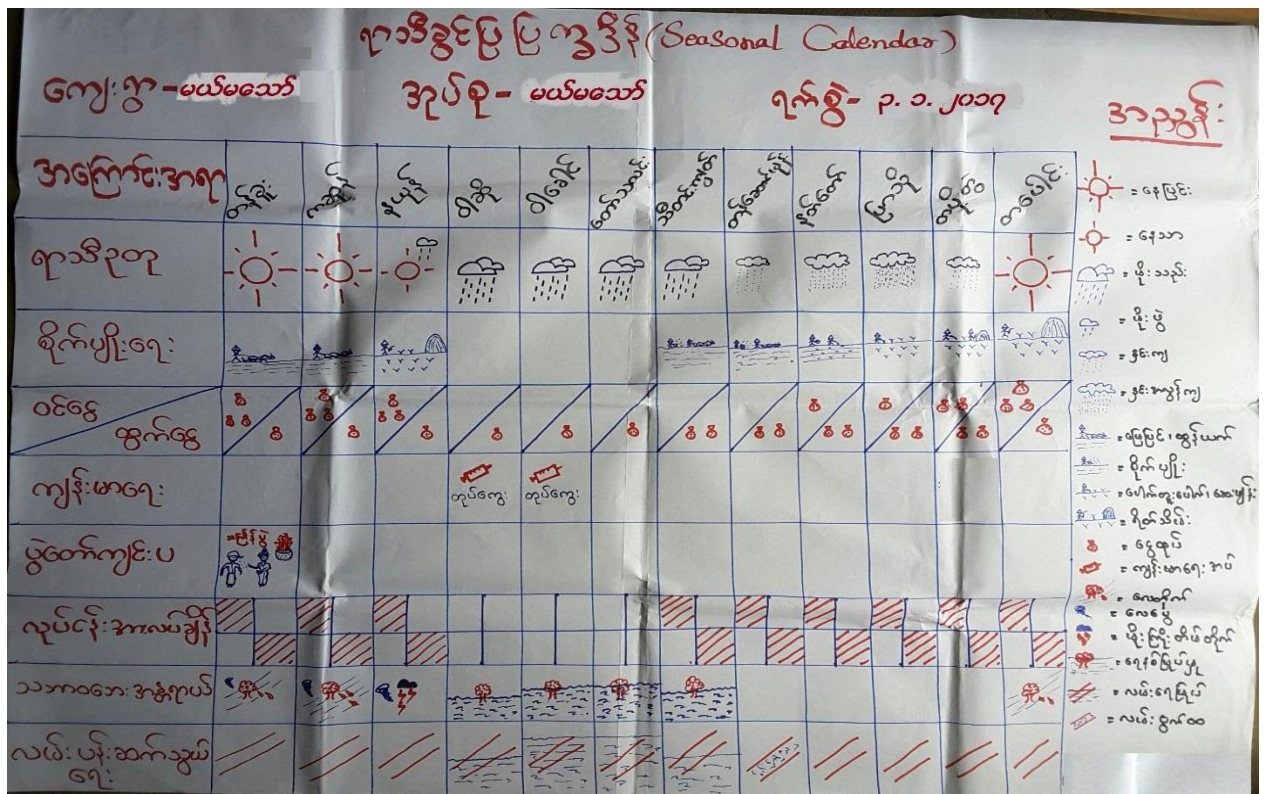 ရာသီခွင်ပြ ပြက္ခဒိန် (Seasonal Calendar)
ကျေးရွာ - မယ်မသော် အုပ်စု - မယ်မသော် ရက်စွဲ - ၃.၁.၂၀၁၇
အညွှန်း
အကြောင်းအရာ တန်ခူး ကဆုန် နယုန် ဝါဆို ဝါခေါင် တော်သလင်း သီတင်းကျွတ် တန်ဆောင်မုန်း နတ်တော် ပြာသို တပို့တွဲ တပေါင်း
ရာသီဥတု
စိုက်ပျိုးရေး
ဝင်ငွေ
ထွက်ငွေ
ကျန်းမာရေး တုပ်ကွေး တုပ်ကွေး
ပွဲတော်ကျင်းပ
လုပ်ငန်းအားလပ်ချိန်
သဘာဝဘေးအန္တရာယ်
လမ်းပန်းဆက်သွယ်
ရေး
= နေပြင်း
= နေသာ
= မိုးသည်း
= မိုးဖွဲ
= နှင်းကျ
= နှင်းအလွန်ကျ
= မြေပြင်၊ ထွန်ယက်
= စိုက်ပျိုး
= ရိတ်သိမ်း
= ငွေထုပ်
= ကျန်းမာရေး အပ်
= လေတိုက်
= လေပွေ
= မိုးကြိုးတိမ်တိုက်
= ရေနစ်မြုပ်မှု
= လမ်းရေမြုပ်